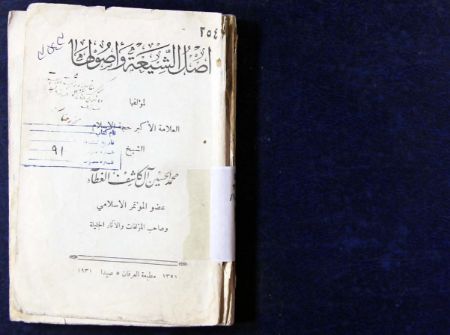 ٢٥٤
اصل الشيعة واصولها
لمؤلفها
العلامة الأكبر حجة الاسلام
الشيخ
محمد الحسين آل كاشف الغطاء
عضو المؤتمر الاسلامي
وصاحب المؤلفات والآثار الجليلة
٩١
مطبعة العرفان ٥ صيدا ١٩٣١